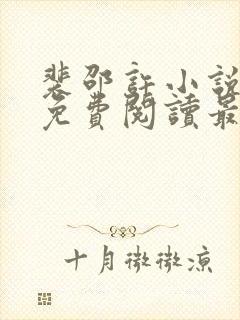 裴邵許小說
免費閱讀最
十月微微涼